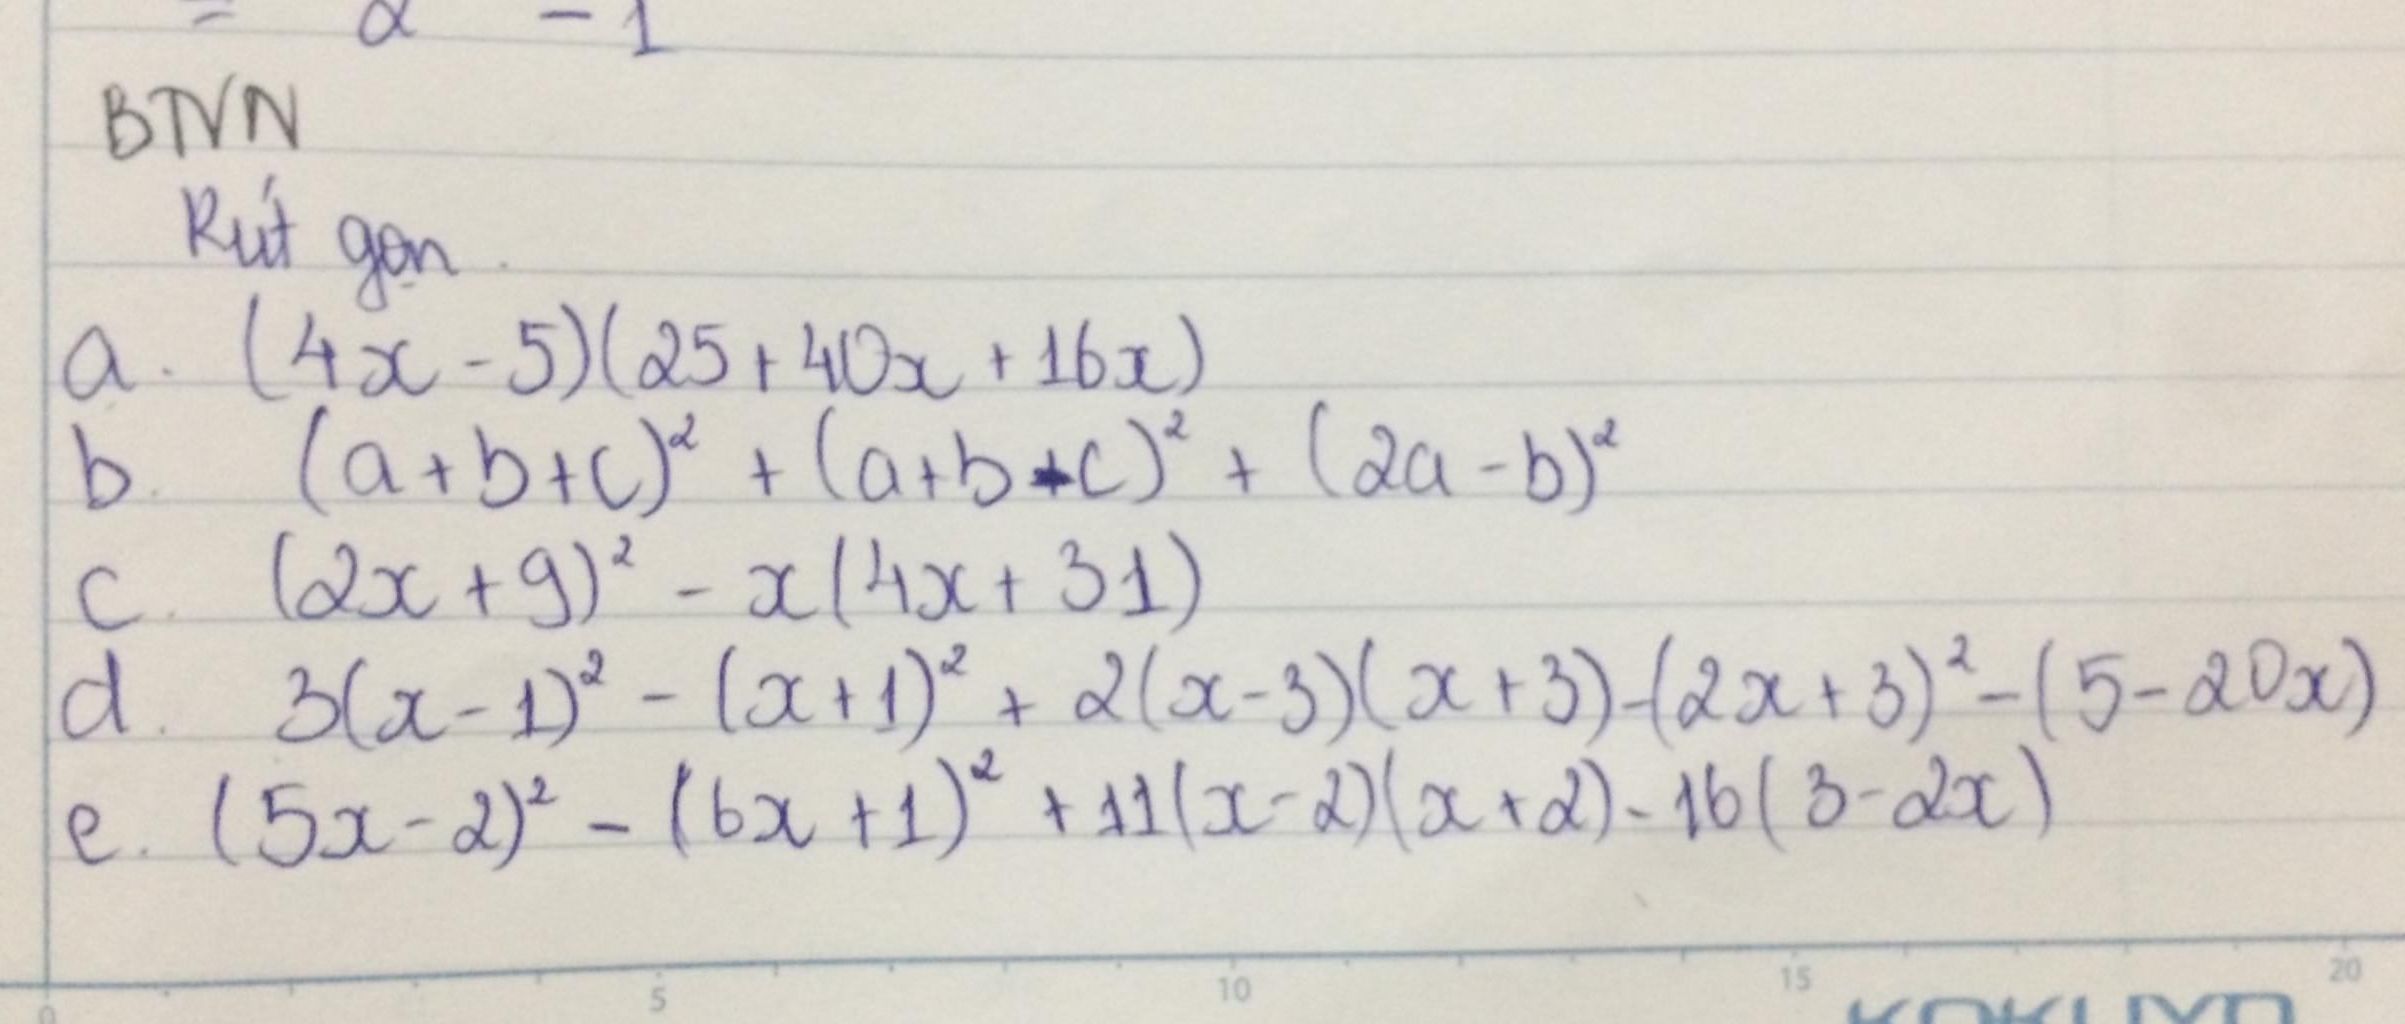 = a - 1
BTVN
Rút gọn.
a. (4x - 5)(25 + 40x + 16x)
b. (a + b + c)² + (a + b + c)² + (2a - b)²
c. (2x + 9)² - x(4x + 31)
d. 3(x - 1)² - (x + 1)² + 2(x - 3)(x + 3) - (2x + 3)² - (5 - 20x)
e. (5x - 2)² - (6x + 1)² + 11(x - 2)(x + 2) - 16(3 - 2x)
0 5 10 15 20
KOKUYO